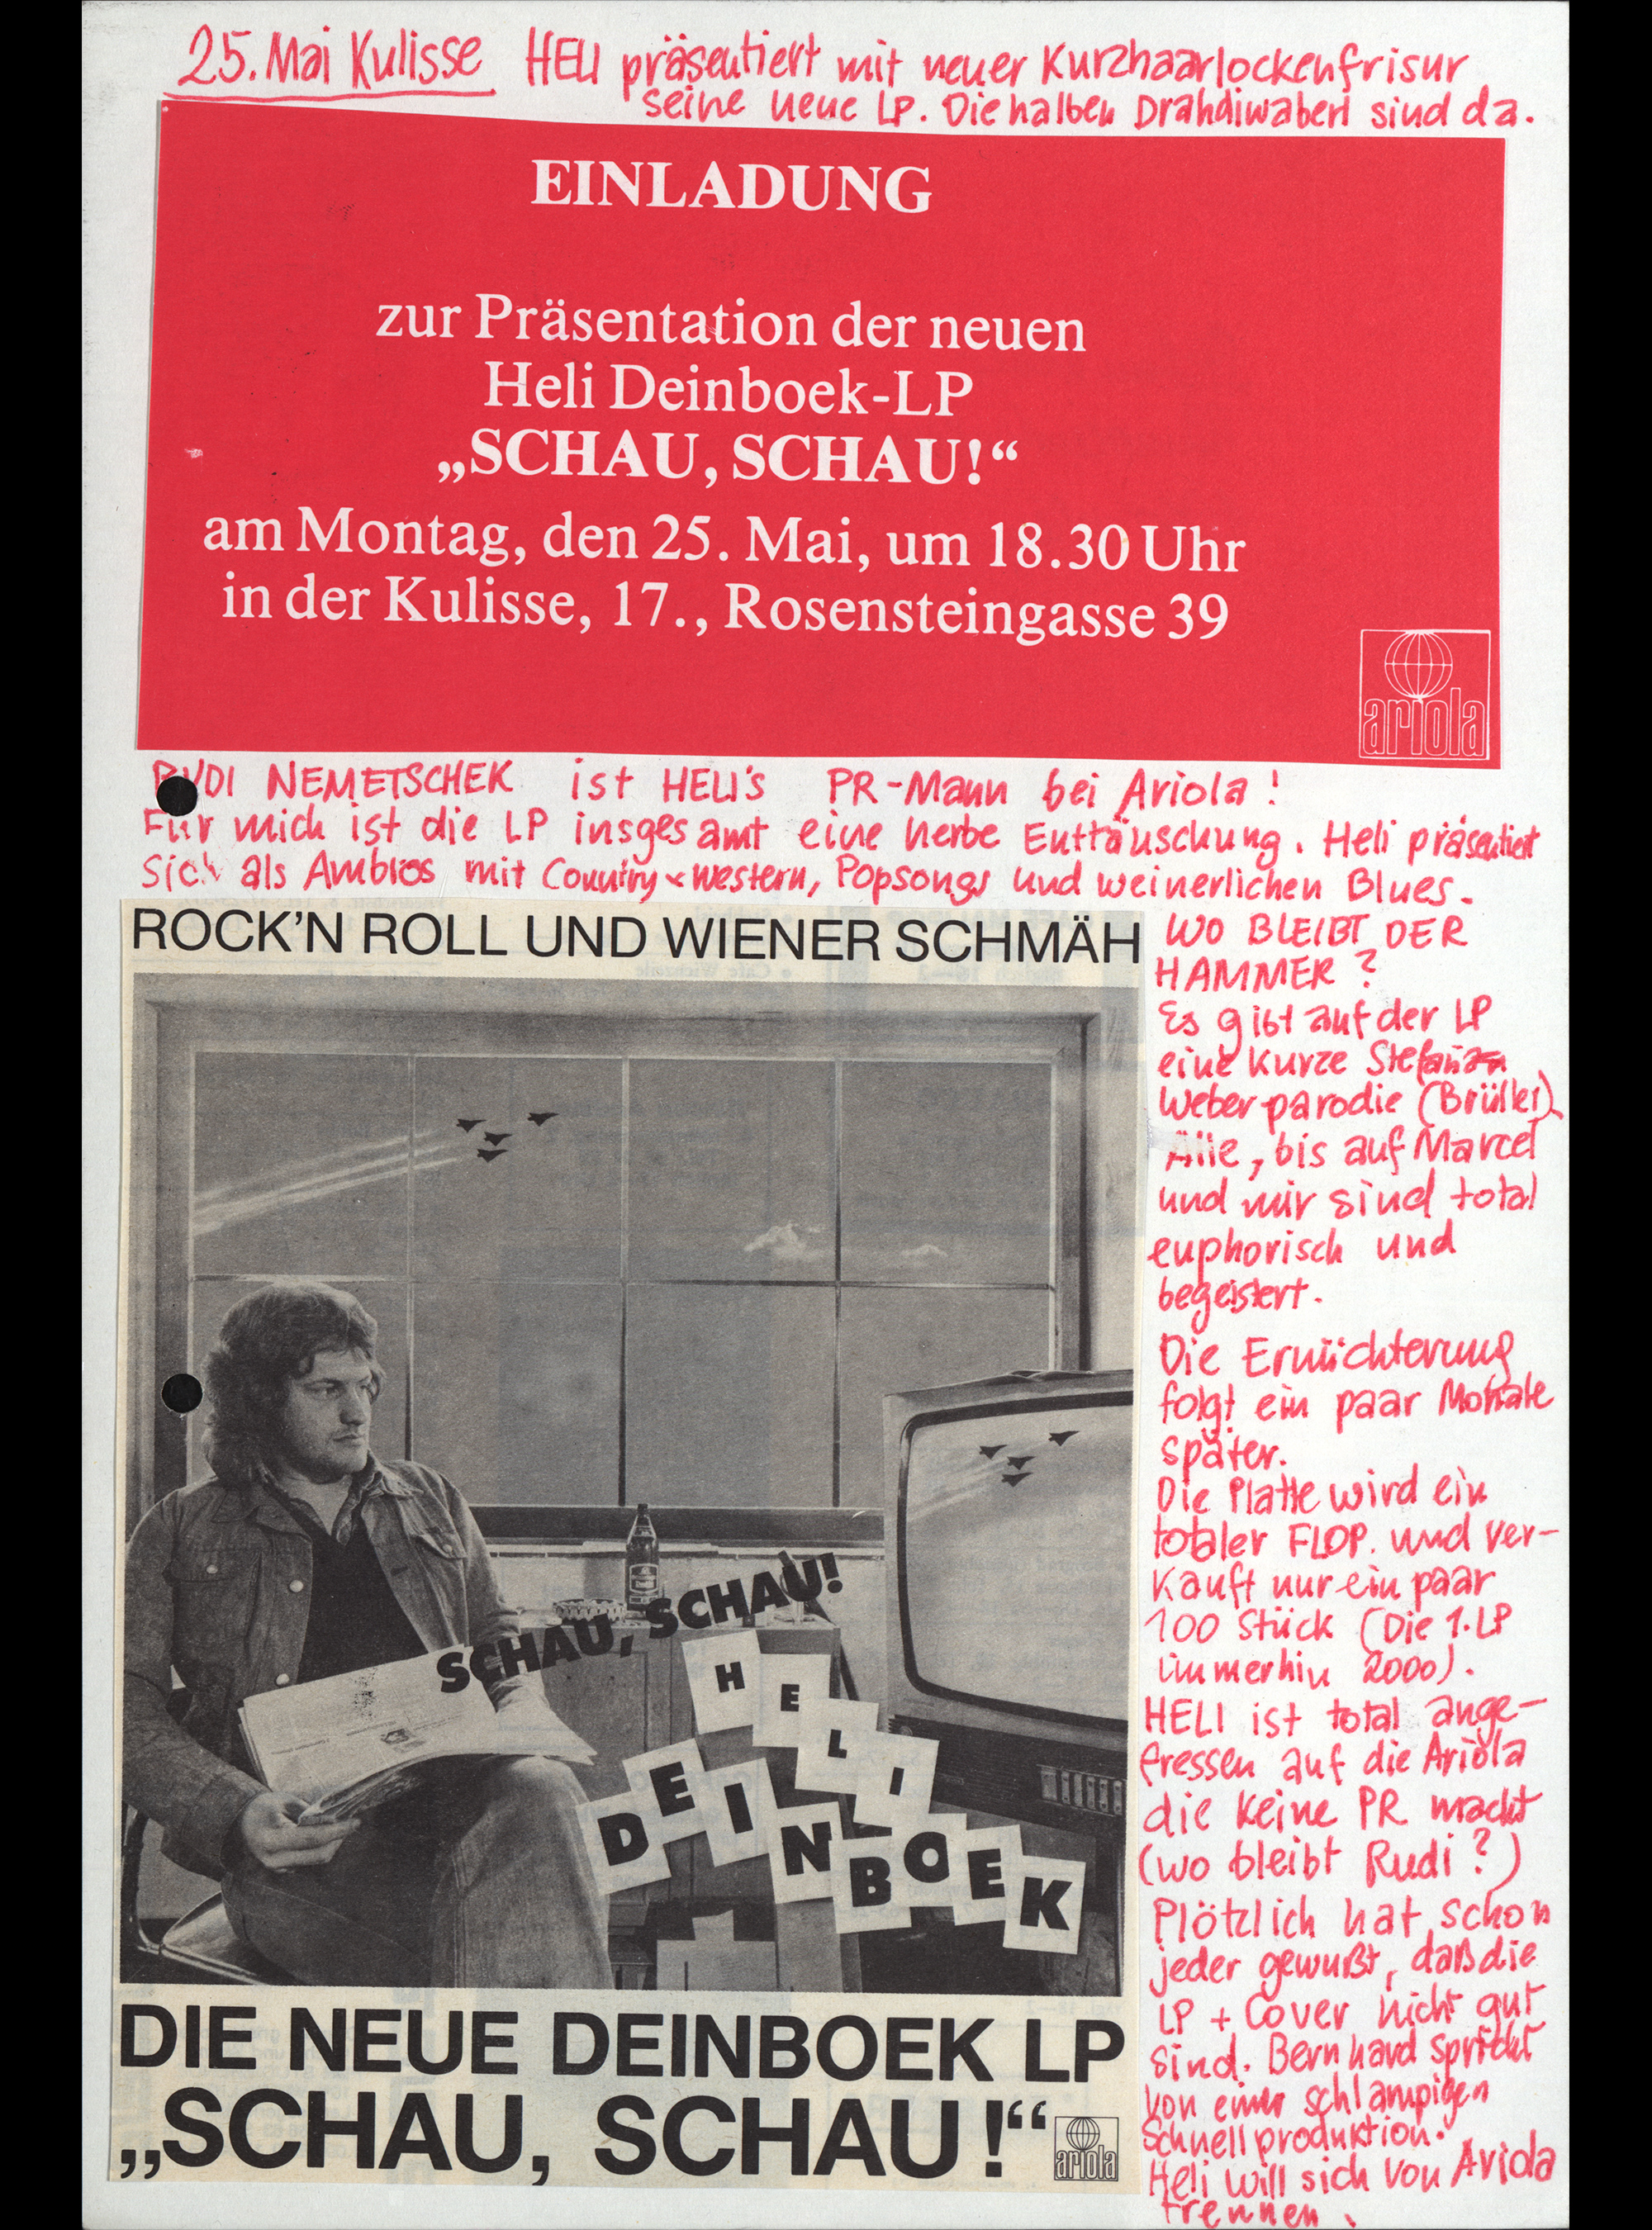 25. Mai Kulisse HELI präsentiert mit neuer Kurzhaarlockenfrisur
seine neue LP. Die halben Drahdiwaberl sind da.
EINLADUNG
zur Präsentation der neuen
Heli Deinboek-LP
„SCHAU, SCHAU!“
am Montag, den 25. Mai, um 18.30 Uhr
in der Kulisse, 17., Rosensteingasse 39
ariola
RUDI NEMETSCHEK ist HELI's PR-Mann bei Ariola!
Für mich ist die LP insgesamt eine herbe Enttäuschung. Heli präsentiert
sich als Ambros mit Country & western, Popsongs und weinerlichen Blues.
ROCK'N ROLL UND WIENER SCHMÄH
SCHAU, SCHAU!
HELI
DEINBOEK
DIE NEUE DEINBOEK LP
„SCHAU, SCHAU!“
ariola
WO BLEIBT DER
HAMMER?
Es gibt auf der LP
eine kurze Stefan
Weber-parodie (Brüller).
Alle, bis auf Marcel
und mir sind total
euphorisch und
begeistert.
Die Ernüchterung
folgt ein paar Monate
später.
Die Platte wird ein
totaler FLOP. und ver-
kauft nur ein paar
100 Stück (Die 1. LP
immerhin 2000).
HELI ist total ange-
fressen auf die Ariola
die keine PR macht
(wo bleibt Rudi?)
Plötzlich hat schon
jeder gewußt, daß die
LP + Cover nicht gut
sind. Bernhard spricht
von einer schlampigen
Schnellproduktion.
Heli will sich von Ariola
trennen.